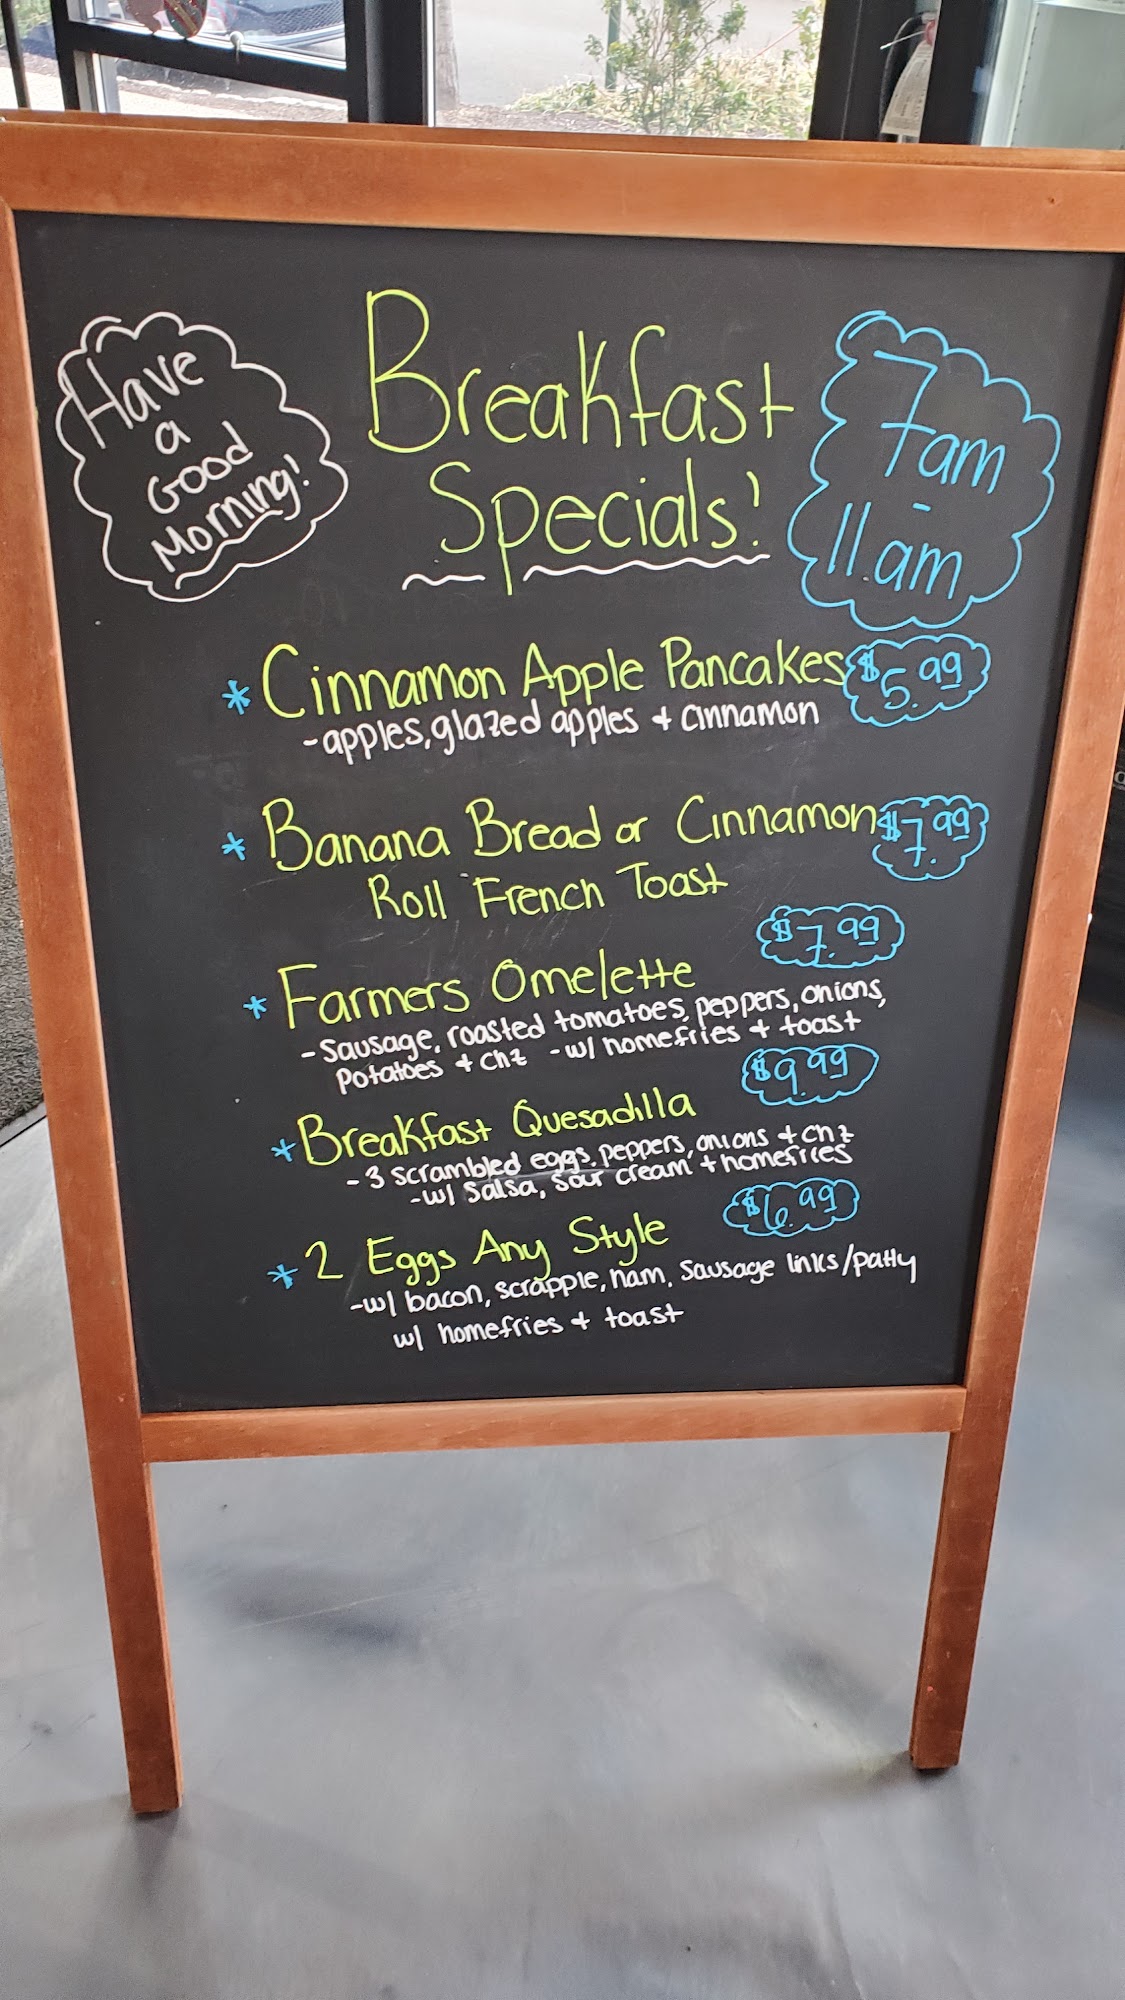 Have
a
Good
Morning!
Breakfast
Specials!
7am
-
11am
* Cinnamon Apple Pancakes $5.99
- apples, glazed apples + cinnamon
* Banana Bread or Cinnamon $7.99
Roll French Toast
* Farmers Omelette $7.99
- Sausage, roasted tomatoes, peppers, onions,
potatoes + chz - w/ homefries + toast
* Breakfast Quesadilla $9.99
- 3 scrambled eggs, peppers, onions + chz
- w/ salsa, sour cream + homefries
* 2 Eggs Any Style $6.99
- w/ bacon, scrapple, ham, sausage links/patty
w/ homefries + toast